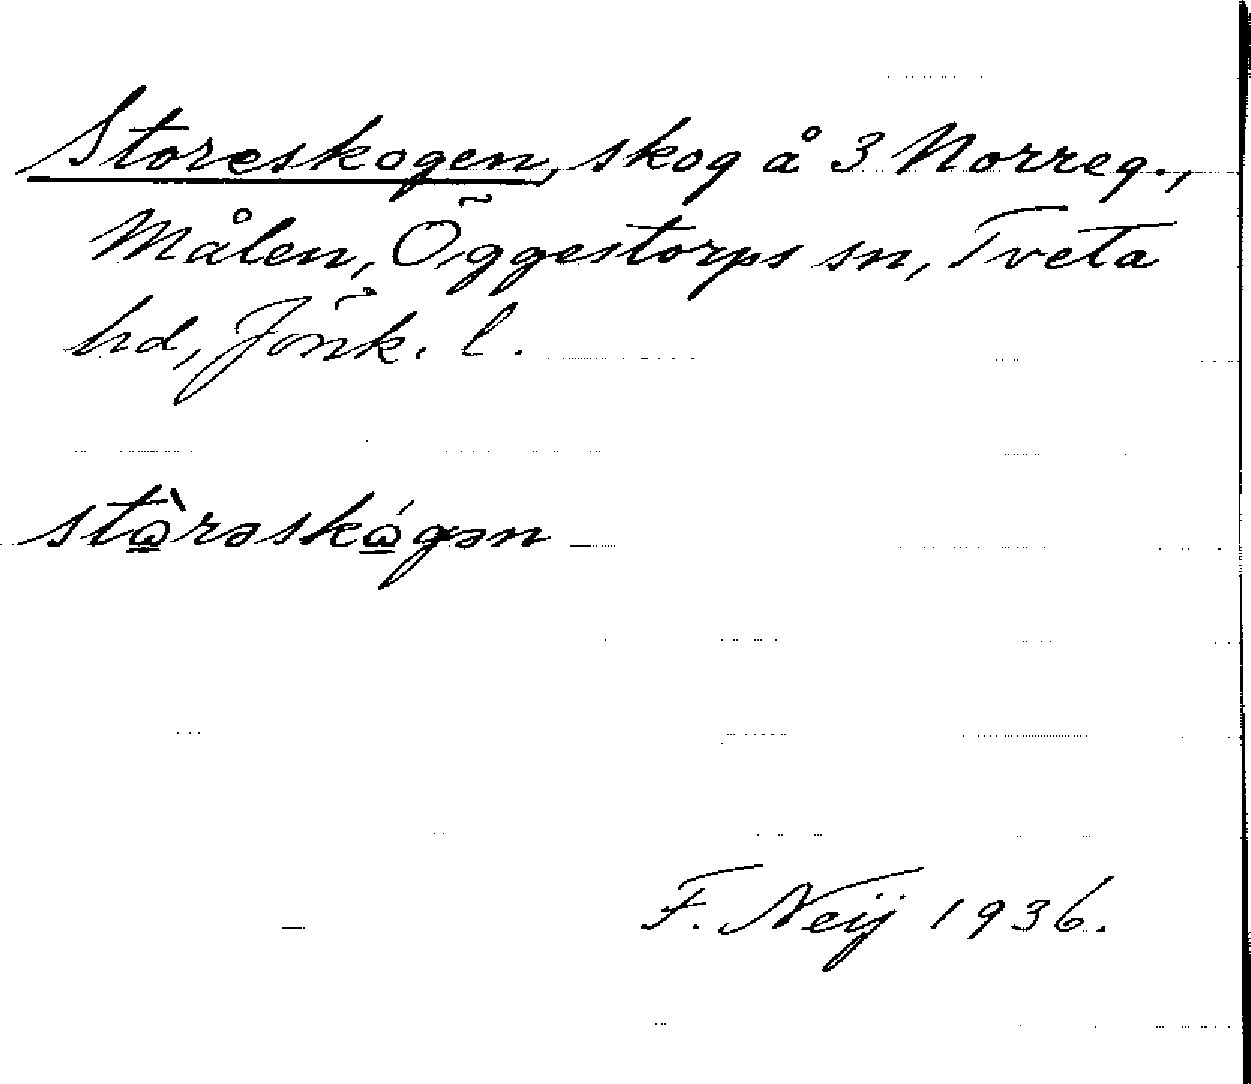 Storeskogen, skog å 3 Norreg.,
Målen, Öggestorps sn, Tveta
hd, Jönk. l.
stὼ̲rəskώ̲gən
F. Neij 1936.